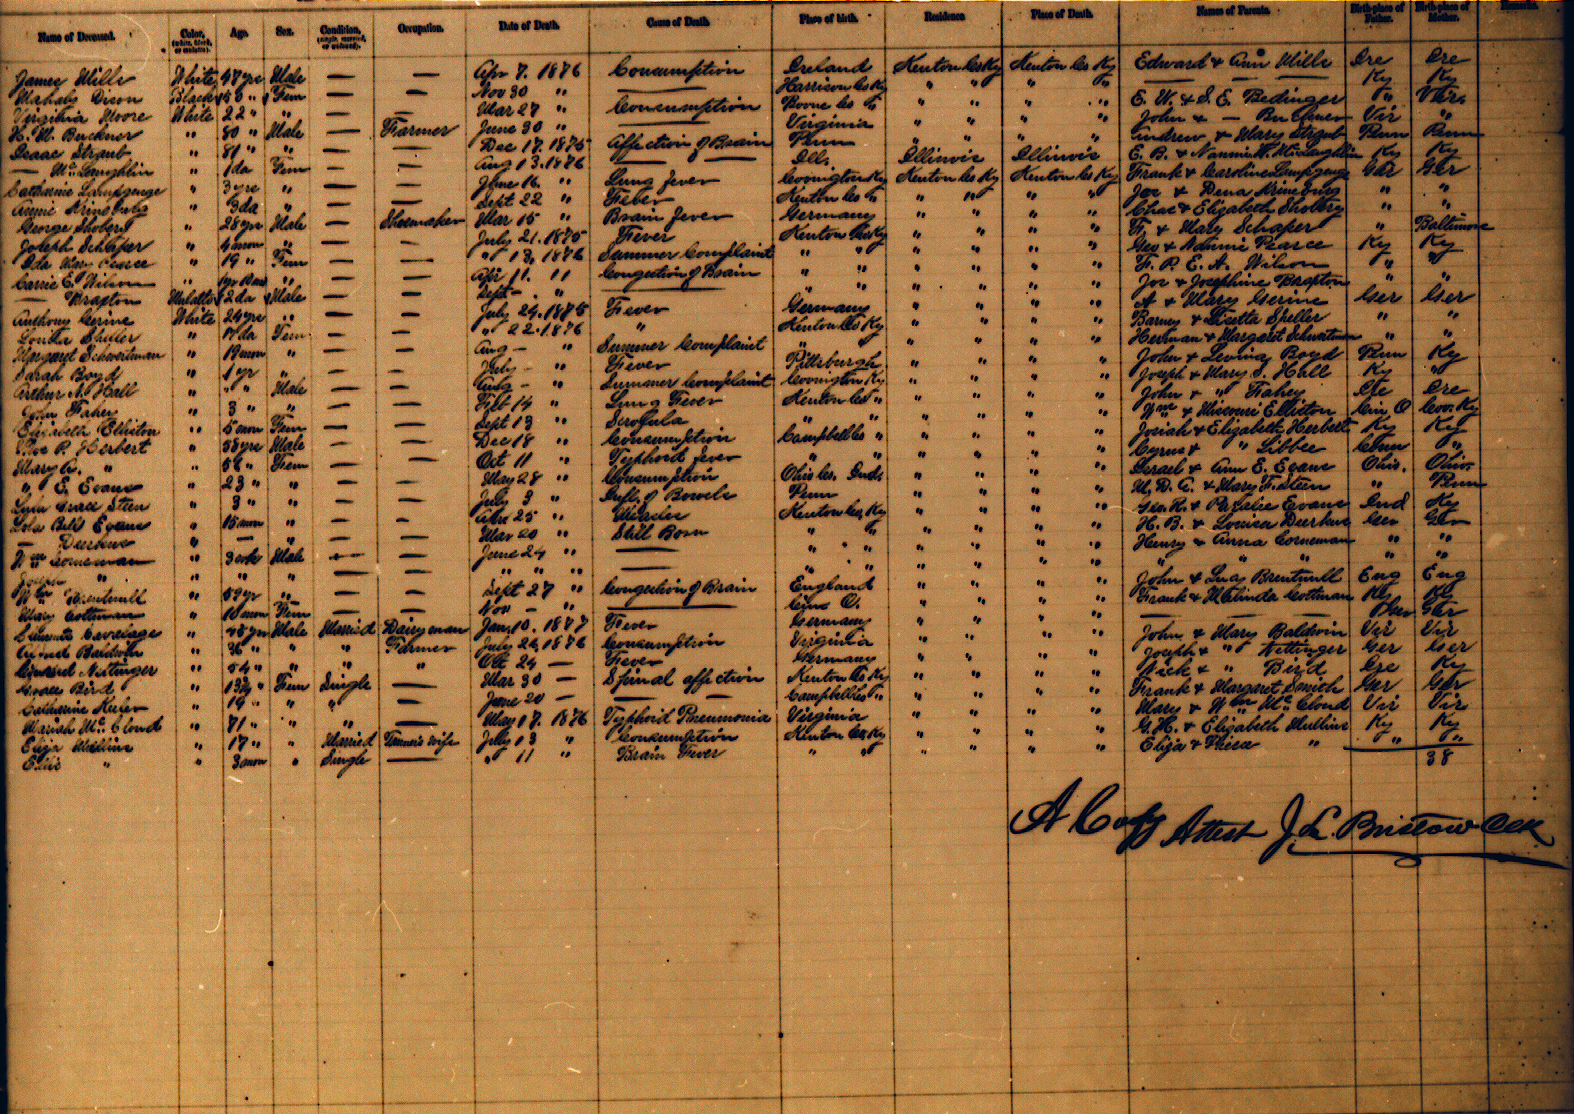 Name of Deceased. Color, (white, black, or mulatto). Age. Sex. Condition, (single, married, or widowed). Occupation. Date of Death. Cause of Death. Place of birth. Residence. Place of Death. Names of Parents. Birth-place of Father. Birth-place of Mother. Remarks.
James Mills White 47 yrs Male — — Apr 7. 1876 Consumption Ireland Kenton Co Ky Kenton Co Ky Edward & Ann Mills Ire Ire
Mahaly Dixon Black 56 " Fem — — Nov 30 " — Harrison Co Ky " " " " — — — Ky Ky
Virginia Moore White 22 " " — — Mar 27 " Consumption Boone Co " " " " " E. W. & S. E. Bedinger " Vir.
H. M. Buckner " 80 " Male — Farmer June 30 " — Virginia " " " " John & — Buckner Vir —
Isaac Straub " 81 " " — — Dec 17. 1875 Affection of Brain Penn " " " " Andrew & Mary Straub Penn Penn
— McLaughlin " 1 da Fem — — Aug 13. 1876 — Ill. Illinois Illinois E. B. & Nannie H. McLaughlin Ky Ky
Catharine " 3 yrs " — — June 16. " Lung fever Covington Ky Kenton Co Ky Kenton Co Ky Frank & Caroline Ger Ger
Annie " 3 da " — — Sept 22 " Fever Kenton Co " " " " " Joe & Dena " "
George Shoberg " 28 yrs Male — Shoemaker Mar 15 " Brain fever Germany " " " " Chas & Elizabeth Shoberg " "
Joseph Schaper " 4 mon " — — July 21. 1875 Fever Kenton Co Ky " " " " F. & Mary Schaper " Baltimore
Ida May Pearce " 19 " Fem — — " 13, 1876 Summer Complaint " " " " " " Geo & Nannie Pearce Ky Ky
Carrie E. Wilson " " — — Apr 11. 11 Congestion of Brain " " " " " " F. P. E. A. Wilson " "
— Braxton Mulatto 2 da Male — — Sept — " — " " " " " " Joe & Josephine Braxton " "
Anthony Gerine White 24 yrs " — — July 24. 1875 Fever Germany " " " " A & Mary Gerine Ger Ger
Louisa Sheller " 17 da Fem — — " 22. 1876 " Kenton Co Ky " " " " Barney & Lisetta Sheller " "
Margaret Schwertman " 19 mon " — — Aug — " Summer Complaint " " " " " Herman & Margaret Schwertman " "
Sarah Boyd " 1 yr " — — July — " Fever Pittsburgh " " " " John & Levina Boyd Penn Ky
Arthur N. Hall " " " Male — — Aug — " Summer Complaint Covington Ky " " " " Joseph & Mary S. Hall Ky "
John Fahey " 3 " " — — Feb 14 " Lung Fever Kenton Co " " " " " John & " Fahey Ire Ire
Elizabeth Elliston " 5 mon Fem — — Sept 13 " Scrofula " " " " " Wm & Missouri Elliston Cin O Cov. Ky
P. Herbert " 58 yrs Male — — Dec 18 " Consumption Campbell Co " " " " " Josiah & Elizabeth Herbert Ky Ky
Mary A. " " 56 " Fem — — Oct 11 " Typhoid fever " " " " " " Cyrus & " Libbee Conn "
" E. Evans " 23 " " — — May 28 " Consumption Ohio Co. Ind. " " " " Israel & Ann E. Evans Ohio. Ohio.
Lulu Grace Steen " 3 " " — — July 3 " Infl. of Bowels Penn " " " " M. D. C. & Mary F. Steen " Penn
Lola Bell Evans " 15 mon " — — Apr 25 " Measles Kenton Co, Ky " " " " Geo R. & Evans Ind Ky
— Duerkes " — " — — Mar 20 " Still Born " " " " " " H. B. & Louisa Duerkes Ger Ger
Wm Corneman " 3 wk Male — — June 24 " — " " " " " " Henry & Anna Corneman " "
" " " " — — " " " — " " " " " " " " " "
Wm Brentnall " 59 yr " — — Sept 27 " Congestion of Brain England " " " " John & Lucy Brentnall Eng Eng
Mary Cottman " 10 mon Fem — — Nov — " — Cin. O. " " " " Frank & Malinda Cottman Ky Ky
" 45 yrs Male Married Dairyman Jany 10. 1877 Fever Germany " " " " — — Ger Ger
Baldwin " 36 " " " Farmer July 26, 1876 Consumption Virginia " " " " John & Mary Baldwin Vir Vir
Nettinger " 54 " " " " Oct 24 — Fever Germany " " " " Joseph & " Nettinger Ger Ger
Bird " Fem Single — Mar 30 — Spinal affection Kenton Co Ky " " " " Nick & " Bird Ire Ky
Catharine " 19 " " " — June 20 — — Campbell Co " " " " " Frank & Margaret Smith Ger Ger
Mariah McCloud " 71 " " " — May 17. 1876 Typhoid Pneumonia Virginia " " " " Mary & Wm McCloud Vir Vir
Eliza Mullins " 17 " " Married Farmers wife July 13 " Consumption Kenton Co, Ky " " " " G. H. & Elizabeth Mullins Ky Ky
" " 3 mon " Single — " 11 " Brain Fever " " " " " " Eliza & " " "
38
A Copy Attest J. L. Bristow Clk